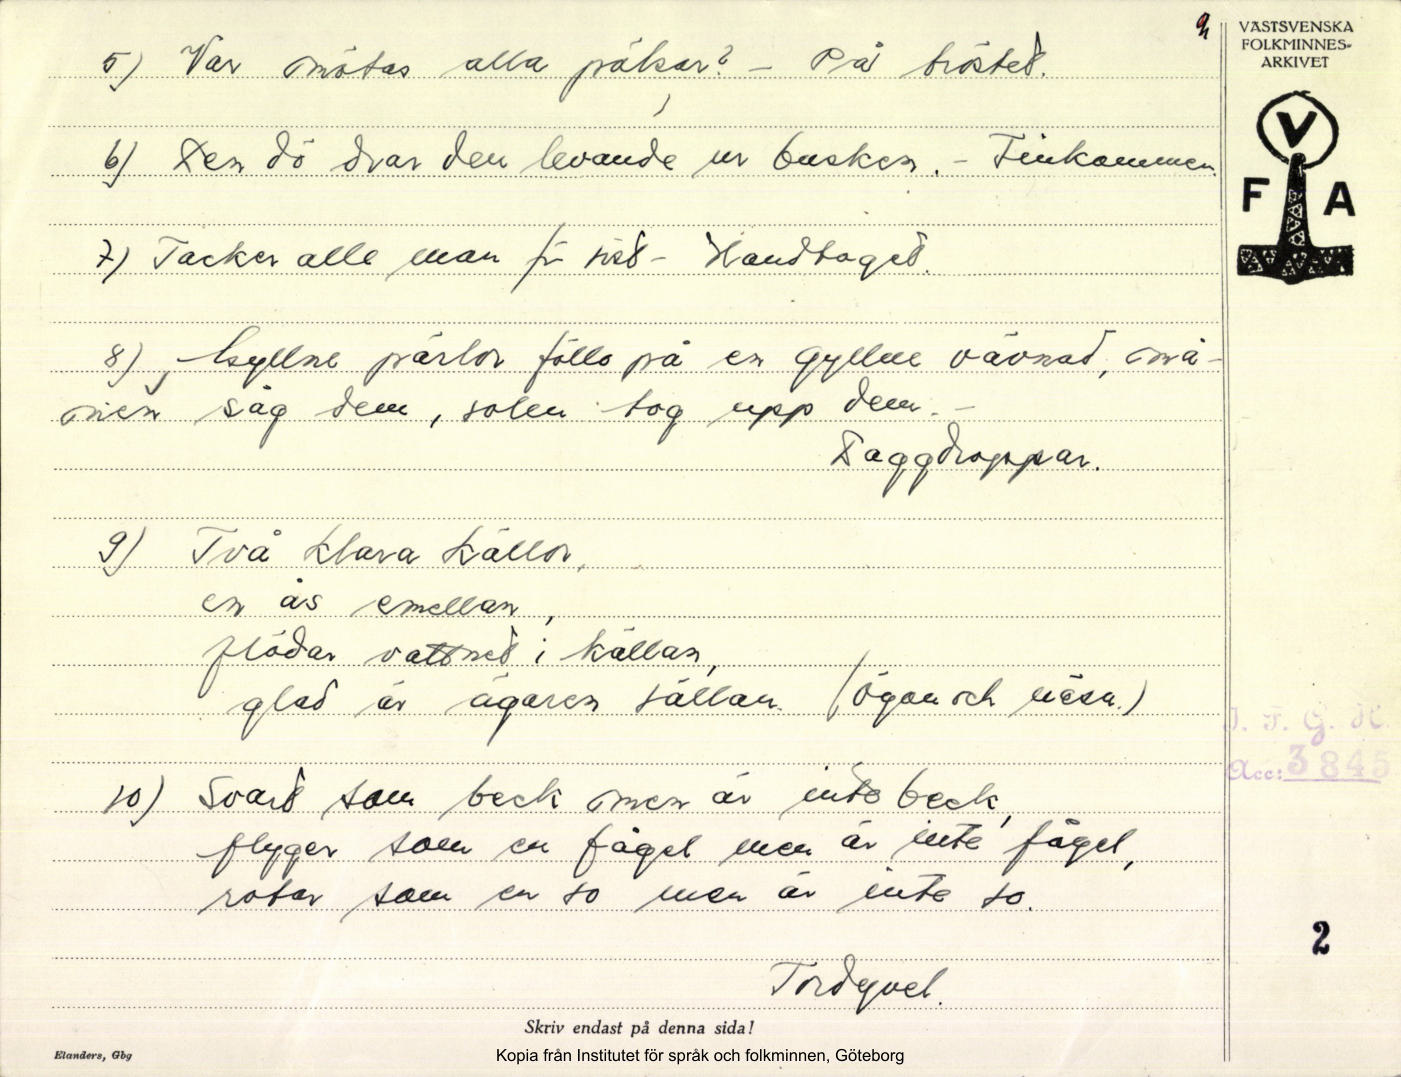 5) Var mötas alla pälsar? – På bröstet.
6) Den dö drar den levande ur busken. – Finkammen.
7) Tacker alle man för sist – Handtaget.
8) Gyllne pärlor föllo på en gyllne vävnad, må-
nen såg dem, solen tog upp dem. –
Daggdroppar.
9) Två klara källor,
en ås emellan,
flödar vattnet i källan,
glad är ägaren sällan. (Ögon och näsa.)
10) Svart som beck men är inte beck,
flyger som en fågel men är inte fågel,
rotar som en so men är inte so.
Tordyvel.
VÄSTSVENSKA
FOLKMINNES-
ARKIVET
V
F A
I. F. G. H.
Acc: 3845
2
Skriv endast på denna sida!
Elanders, Gbg
Kopia från Institutet för språk och folkminnen, Göteborg